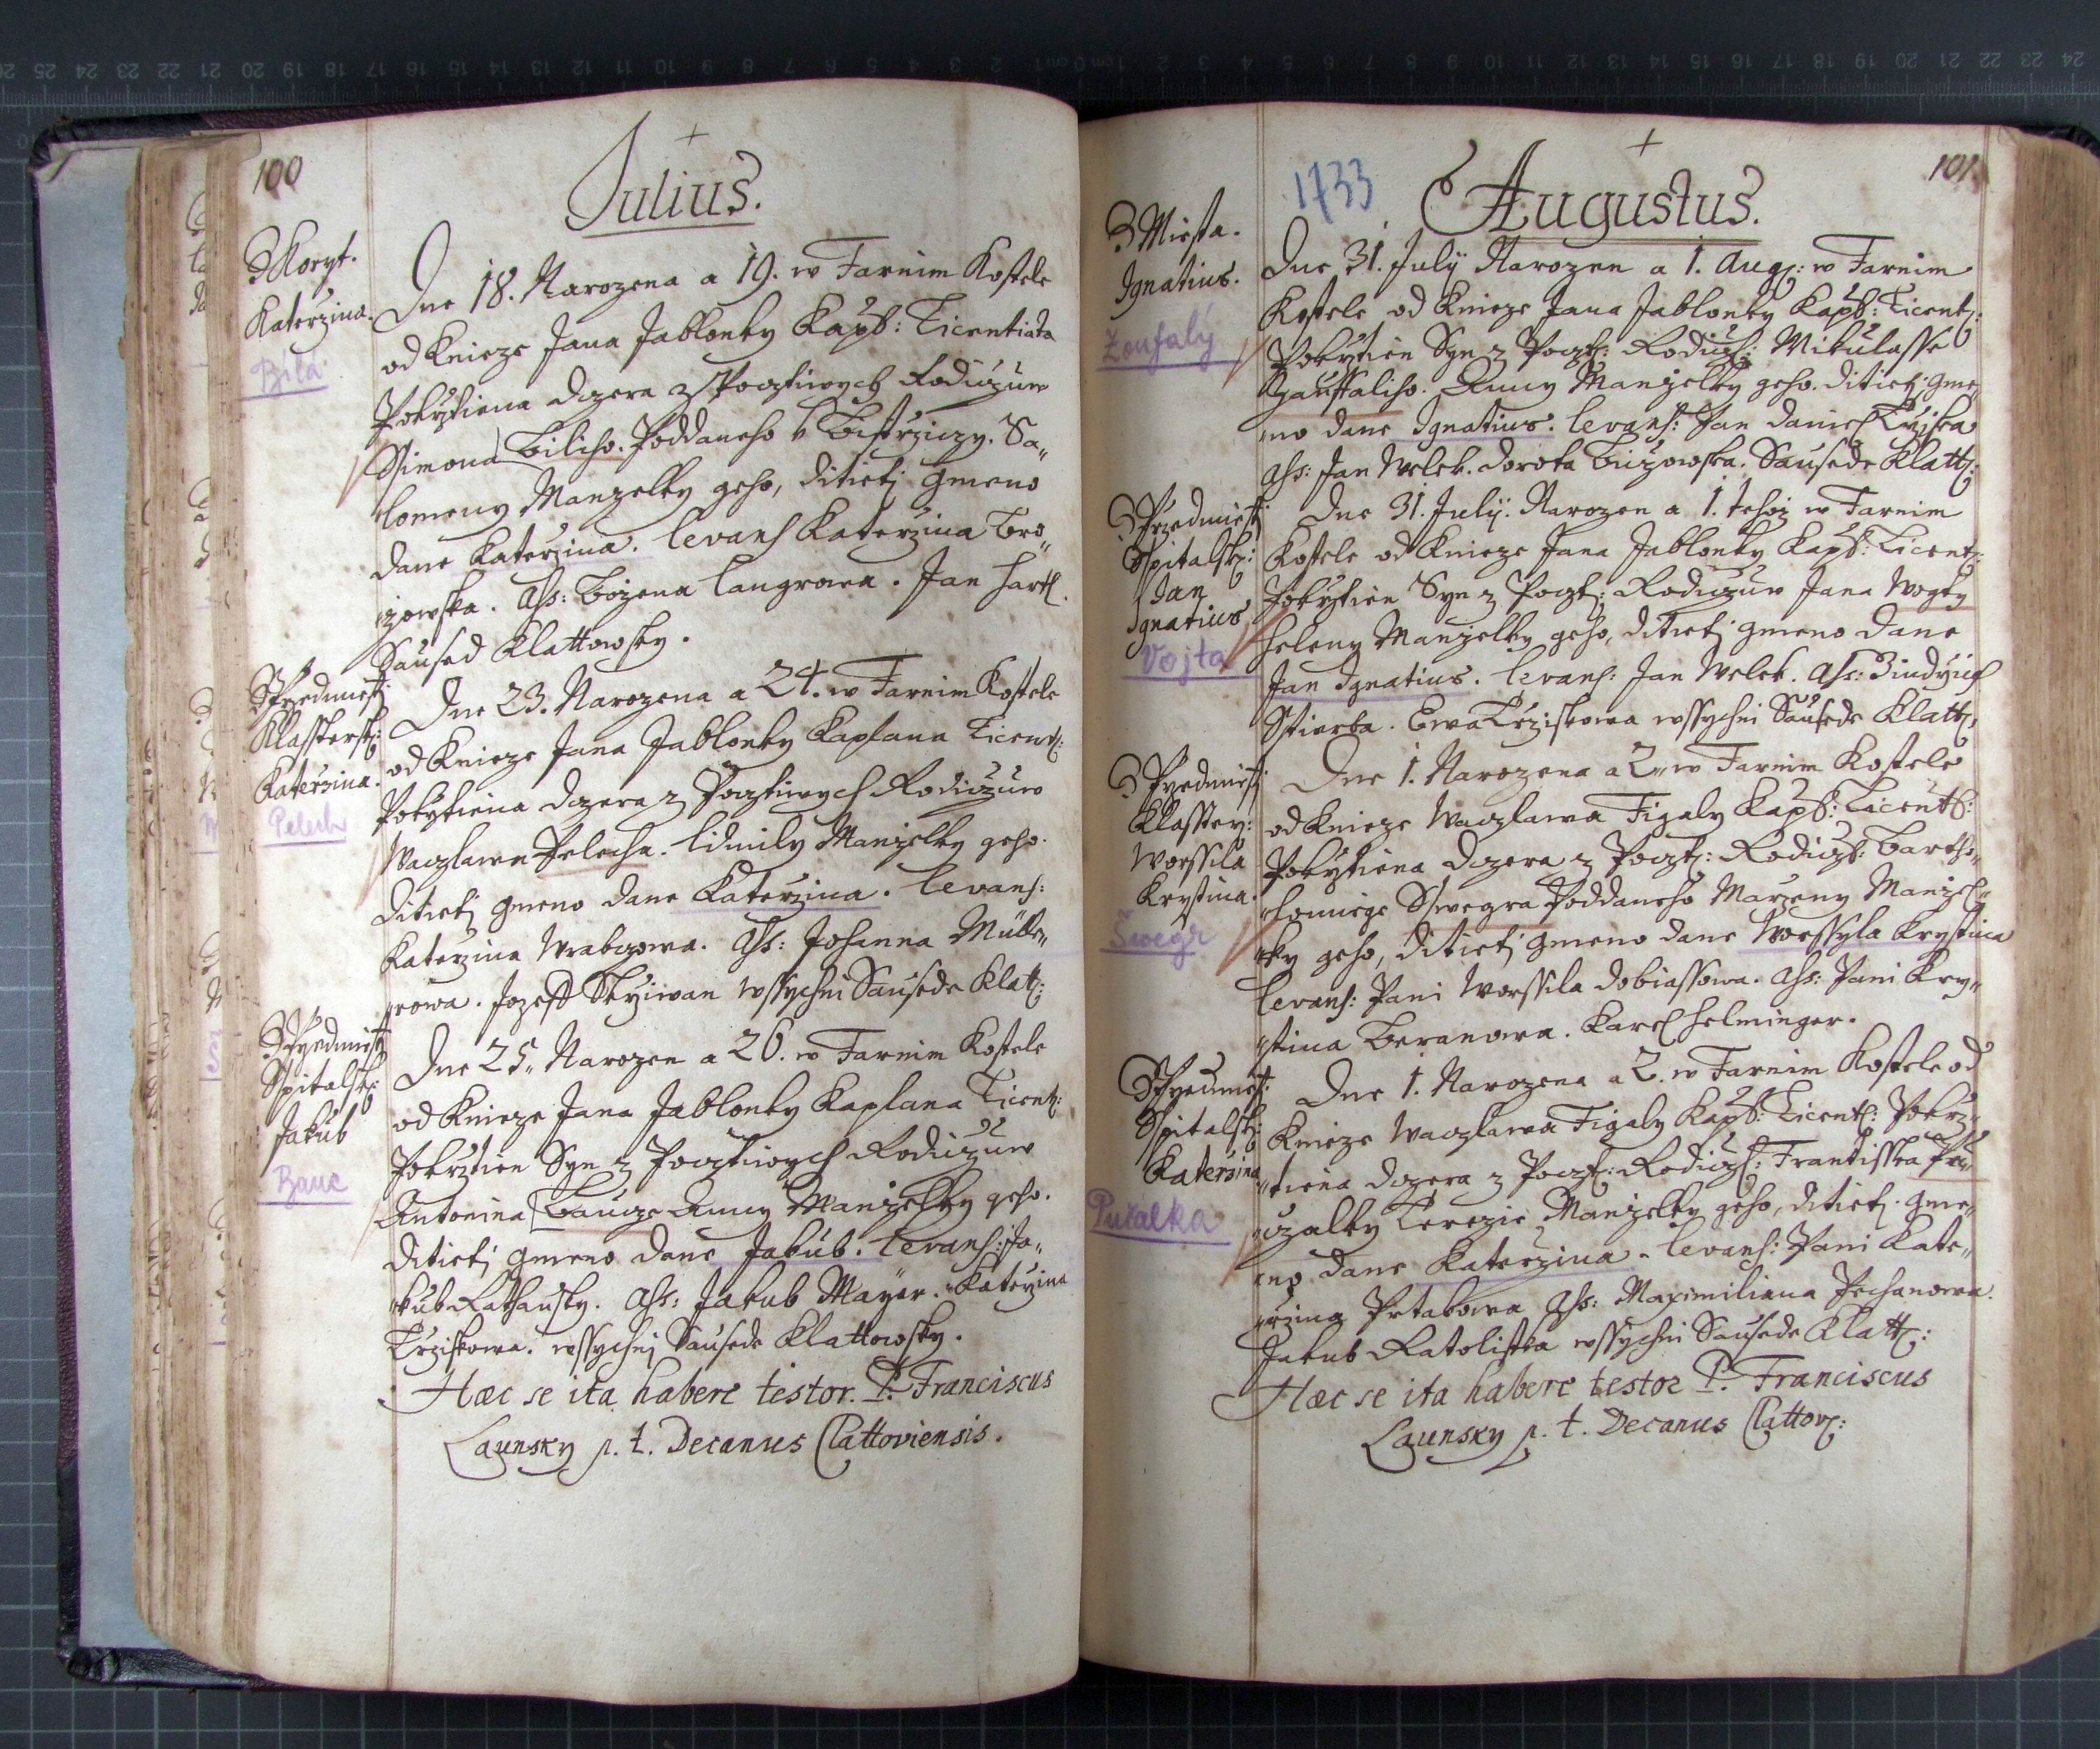 100
Julius.
Z Koryt.
Katerzina.
Bílá
Dne 18. Narozena a 19. w Farnim Kostele
od Knieze Jana Jablonky Kapl: Licentiata
Pokrztiena Dczera z Pocztiwych Rodiczuw
Ssimona Biliho. Poddaneho k Bistrziczy. Sa„
„lomeny Manzelky geho, Ditieti Gmeno
dane Katerzina. Levans Katerzina Bro„
„zowska. Ass: Bozena Langrowa. Jan Hartl.
Saused Klattowsky.
Z Przedmiesti
Klassterske:
Katerzina.
Pelech
Dne 23. Narozena a 24. w Farnim Kostele
od Knieze Jana Jablonky Kaplana Licent:
Pokrztiena Dczera z Pocztiwych Rodiczuw
Waczlawa Pelecha. Lidmily Manzelky geho.
Ditieti gmeno dane Katerzina. Levans:
Katerzina Wrabczowa. Ass: Johanna Mülle„
„rowa. Jozeff Skrziwan wssychni Sausede Klatt:
Z Przedmiesti
Spitalske:
Jakub
Bauc
Dne 25. Narozen a 26. w Farnim Kostele
od Knieze Jana Jablonky Kaplana Licent:
Pokrztien Syn z Pocztiwych Rodiczuw
Antonina Baucze Anny Manzelky geho.
Ditieti gmeno dane Jakub. Levans: Ja„
„kub Rathausky. Ass: Jakub Mayer. Katerzina
Trziskowa. wssychni Sausede Klattowsky.
Hæc se ita habere testor. P. Franciscus
Launsky p. t. Decanus Clattoviensis.
101.
1733
Augustus.
Z Miesta.
Ignatius.
Zoufalý
Dne 31. July Narozen a 1. Aug: w Farnim
Kostele od Knieze Jana Jablonky Kapl: Licent:
Pokrztien Syn z Poczt: Rodicz: Mikulasse
Zauffaliho. Anny Manzelky geho. Ditieti gme„
„no dane Ignatius. Levans: Pan Daniel Trziska
Ass: Jan Welek. Dorota Buzowska. Sausede Klatt:
Z Przedmiesti
Spitalske:
Jan
Ignatius
Vojta
Dne 31. July. Narozen a 1. tehoz w Farnim
Kostele od Knieze Jana Jablonky Kapl: Licent:
Pokrztien Syn z Poczt: Rodiczuw Jana Wogty
Heleny Manzelky geho, Ditieti gmeno dane
Jan Ignatius. Levans: Jan Welek. Ass: Jindrzich
Sstierba. Ewa Trziskowa wssychni Sausede Klatt:
Z Przedmiesti
Klasster:
Worssila
Krystina.
Švegr
Dne 1. Narozena a 2. w Farnim Kostele
od Knieze Waczlawa Figaly Kapl: Licent:
Pokrztiena Dczera z Poczt: Rodicz: Bartho„
„lomiege Sswegra Poddaneho Marzeny Manzel„
„ky geho, Ditieti gmeno dane Worssyla Krystina
Levans: Pani Worssila Dobiassowa. Ass: Pani Kry„
„stina Beranowa. Karel Helminger.
Z Przedmiest:
Spitalske:
Katerzina
Pučalka
Dne 1. Narozena a 2. w Farnim Kostele od
Knieze Waczlawa Figaly Kapl: Licent: Pokrz„
„tiena Dczera z Poczt: Rodicz: Frantisska Pu„
„czalky Terezie Manzelky geho, Ditieti gme„
„no dane Katerzina. Levans: Pani Kate„
„rzina Ptakowa Ass: Maximiliana Pechanowa.
Jakub Ratolistka wssychni Sausede Klatt:
Hæc se ita habere testor P. Franciscus
Launsky p. t. Decanus Clattov: